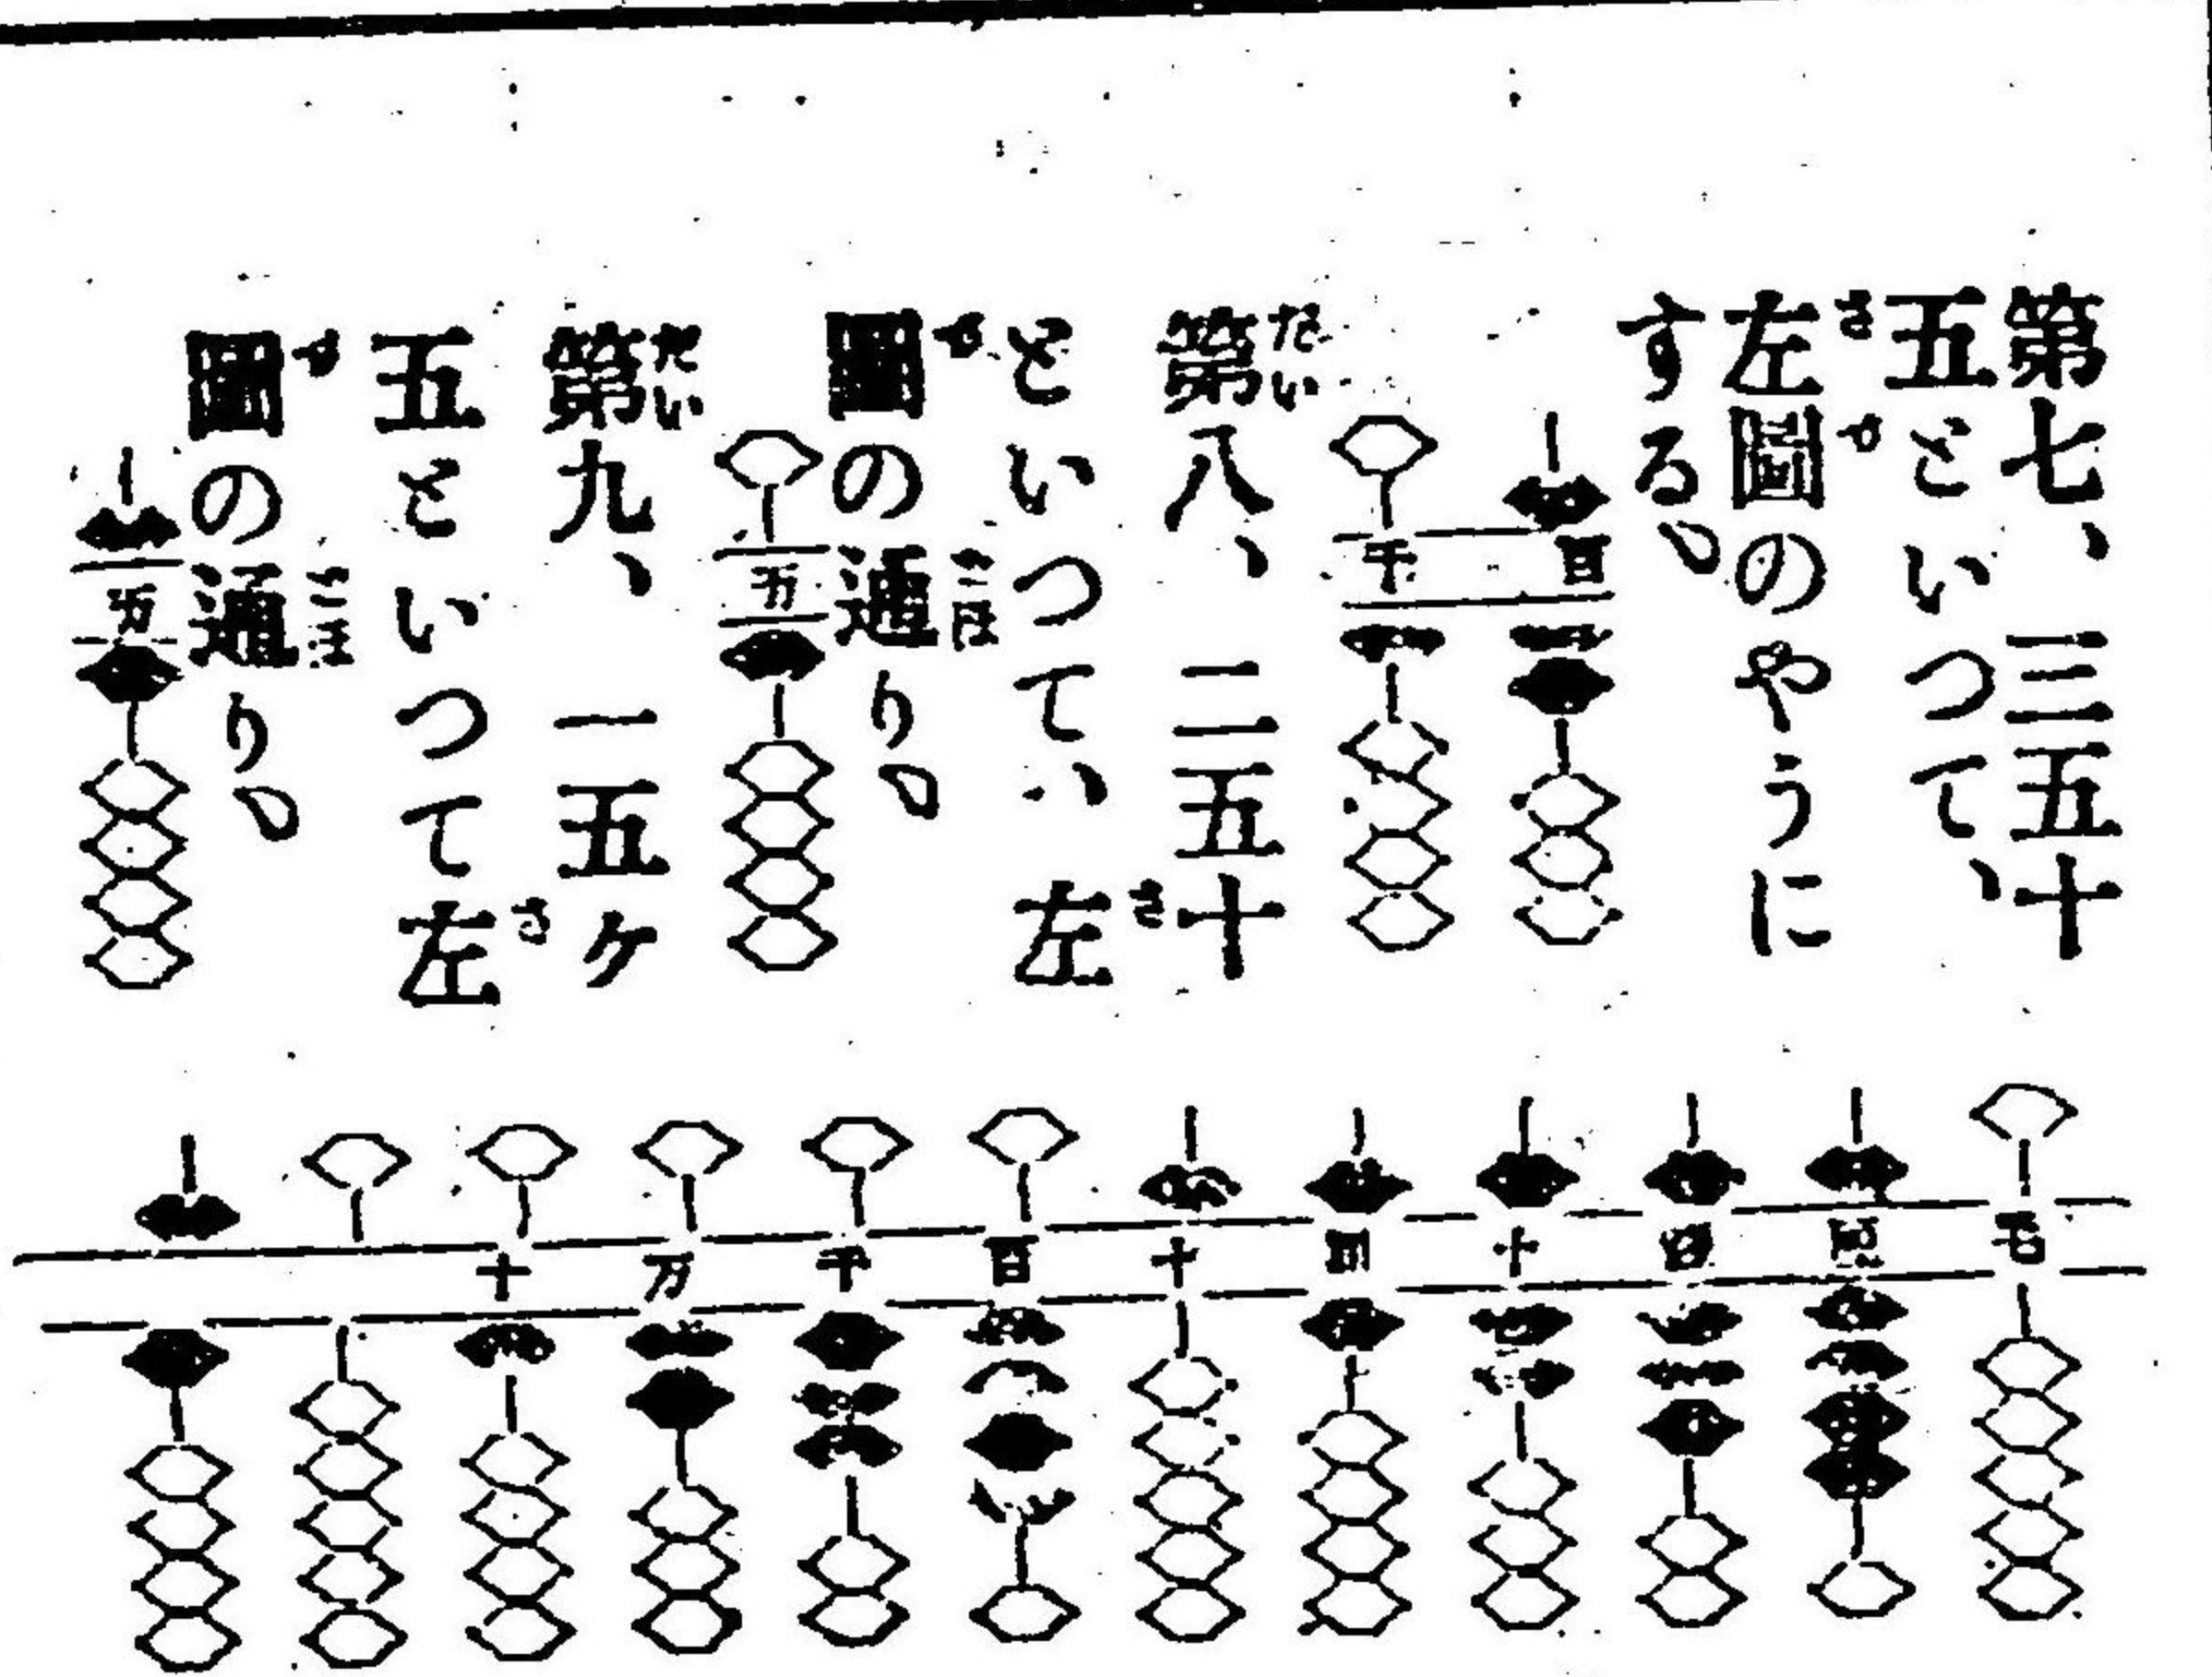 第七、三五十
五といつて、
左圖のやうに
する、
百
千
第八、二五十
といつて、左
圖の通り、
万
第九、一五ヶ
五といつて左
圖の通り、
万
十
百
千
万
十